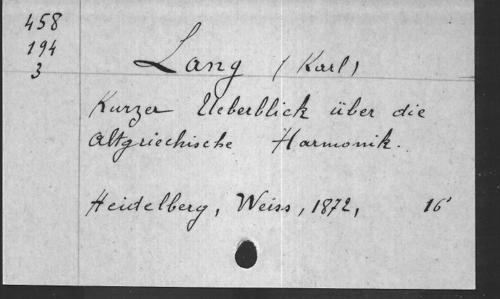 458
194
3
Lang (Karl)
Kurzer Ueberblick über die
altgriechische Harmonik.
Heidelberg, Weiss, 1872, 16°